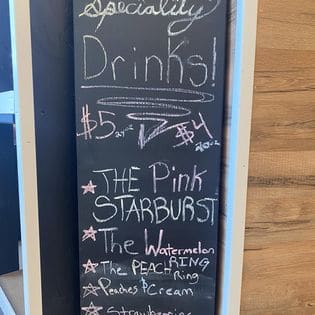 Speciality
Drinks!
$5 24oz $4 20oz
THE Pink
STARBURST
The Watermelon
RING
The PEACH Ring
Peaches & Cream
Strawberries